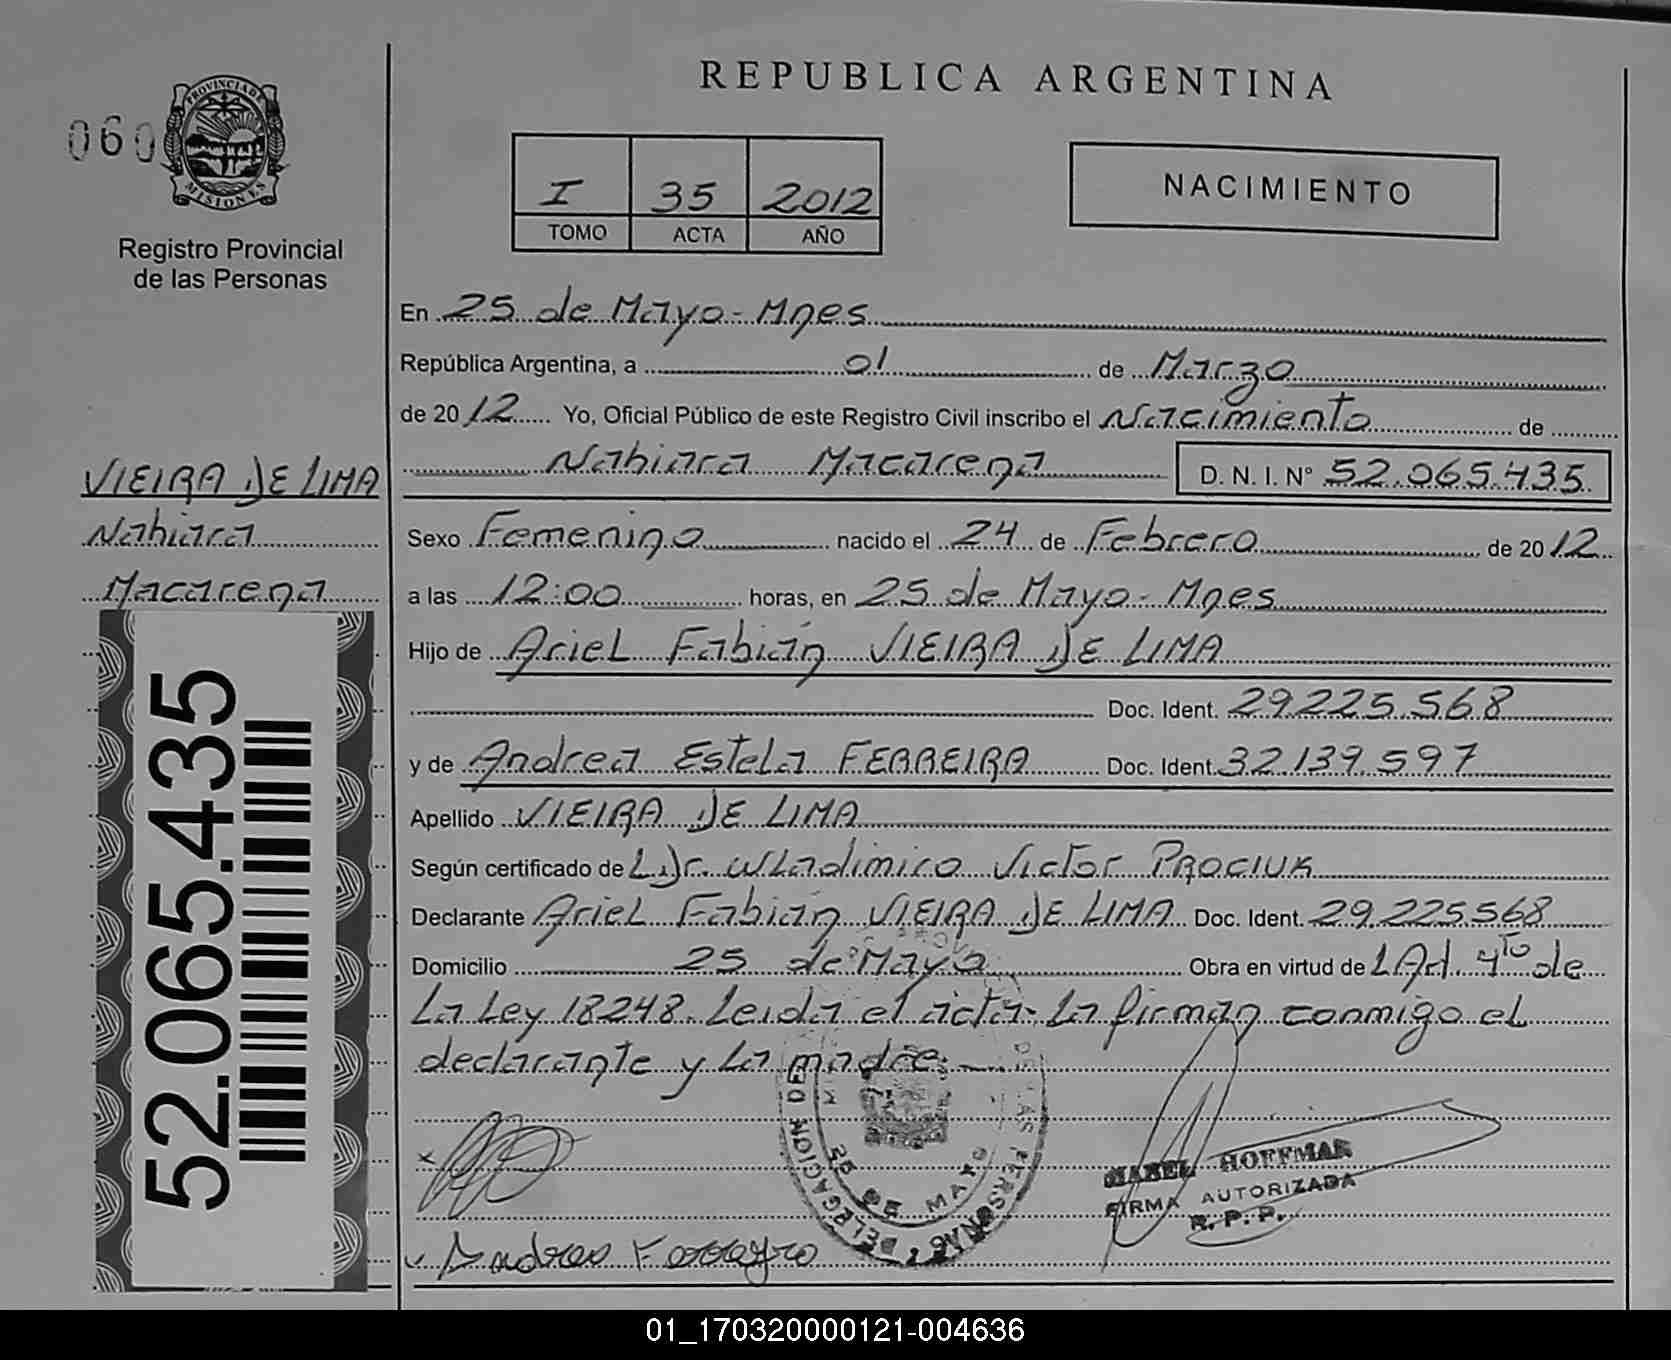 REPUBLICA ARGENTINA
060
PROVINCIA DE
MISIONES
Registro Provincial
de las Personas
I 35 2012
TOMO ACTA AÑO
NACIMIENTO
En 25 de Mayo - Mnes
República Argentina, a 01 de Marzo
de 2012 Yo, Oficial Público de este Registro Civil inscribo el Nacimiento de
Nahiara Macarena D. N. I. N° 52.065.435
VIEIRA DE LIMA
Nahiara
Macarena
52.065.435
Sexo Femenino nacido el 24 de Febrero de 2012
a las 12:00 horas, en 25 de Mayo - Mnes
Hijo de Ariel Fabián VIEIRA DE LIMA
Doc. Ident. 29.225.568
y de Andrea Estela FERREIRA Doc. Ident. 32.139.597
Apellido VIEIRA DE LIMA
Según certificado de L Dr. Wladimiro Victor PROCIUK
Declarante Ariel Fabián VIEIRA DE LIMA Doc. Ident. 29.225.568
Domicilio 25 de Mayo Obra en virtud de L Art. 4to de
La Ley 18248. Leida el acta. La firman conmigo el
declarante y La madre.
DELEGACION DE LAS PERSONAS
25 DE MAYO
HOFFMAN
FIRMA AUTORIZADA
R. P. P.
01_170320000121-004636